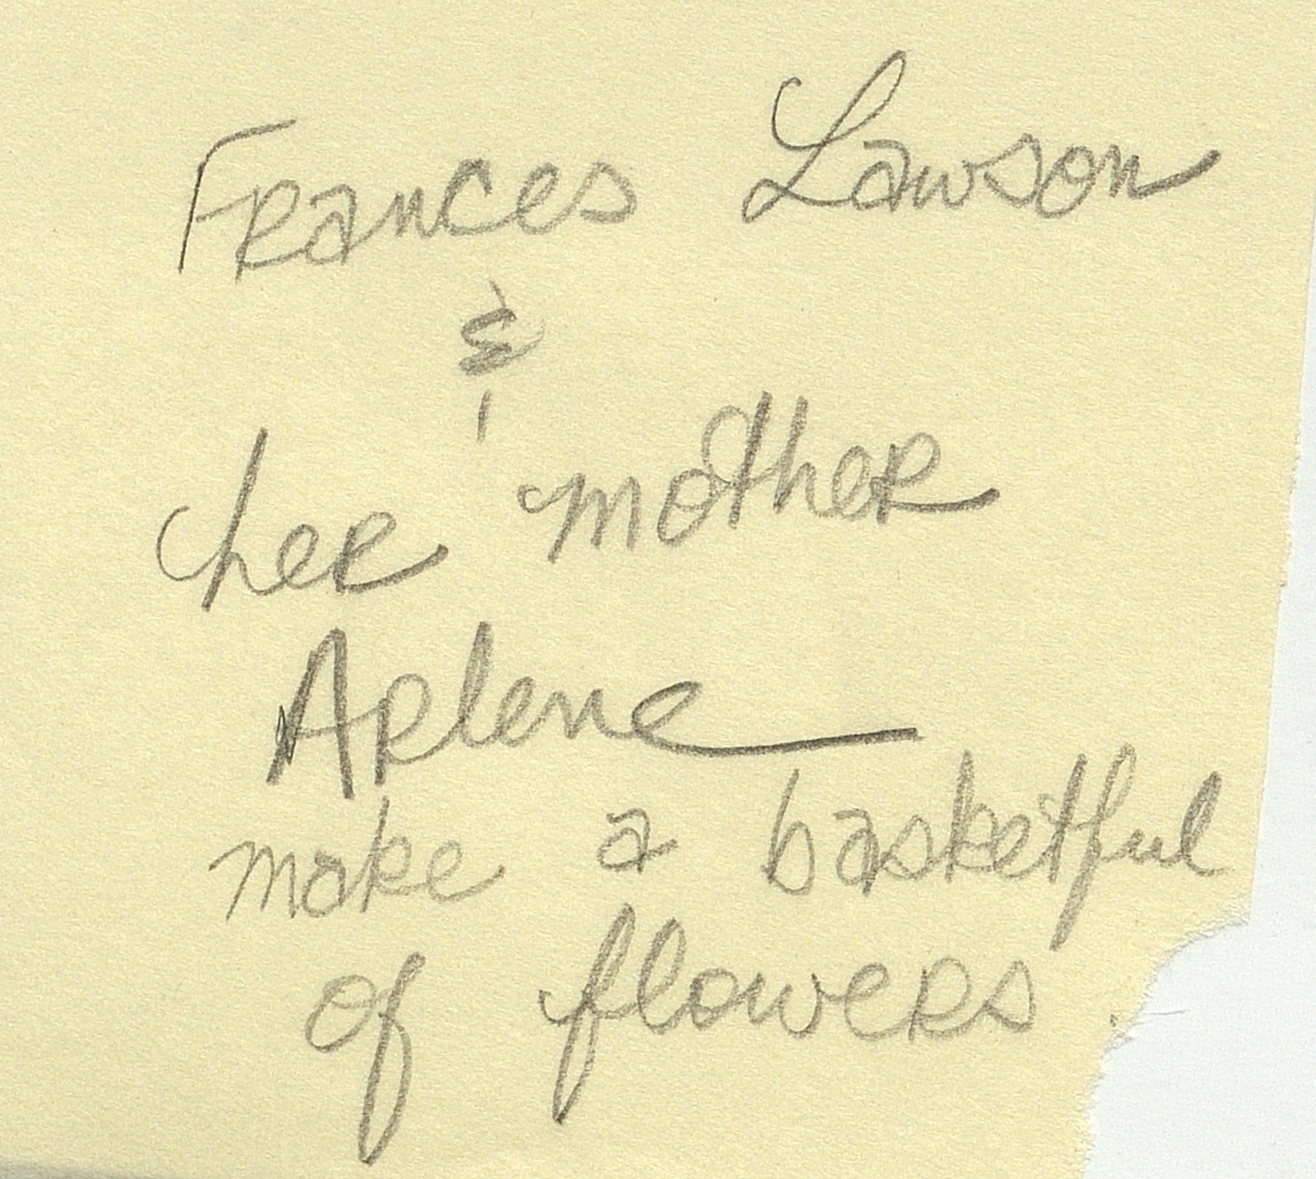 Frances Lawson
&
her mother
Arlene
make a basketful
of flowers.